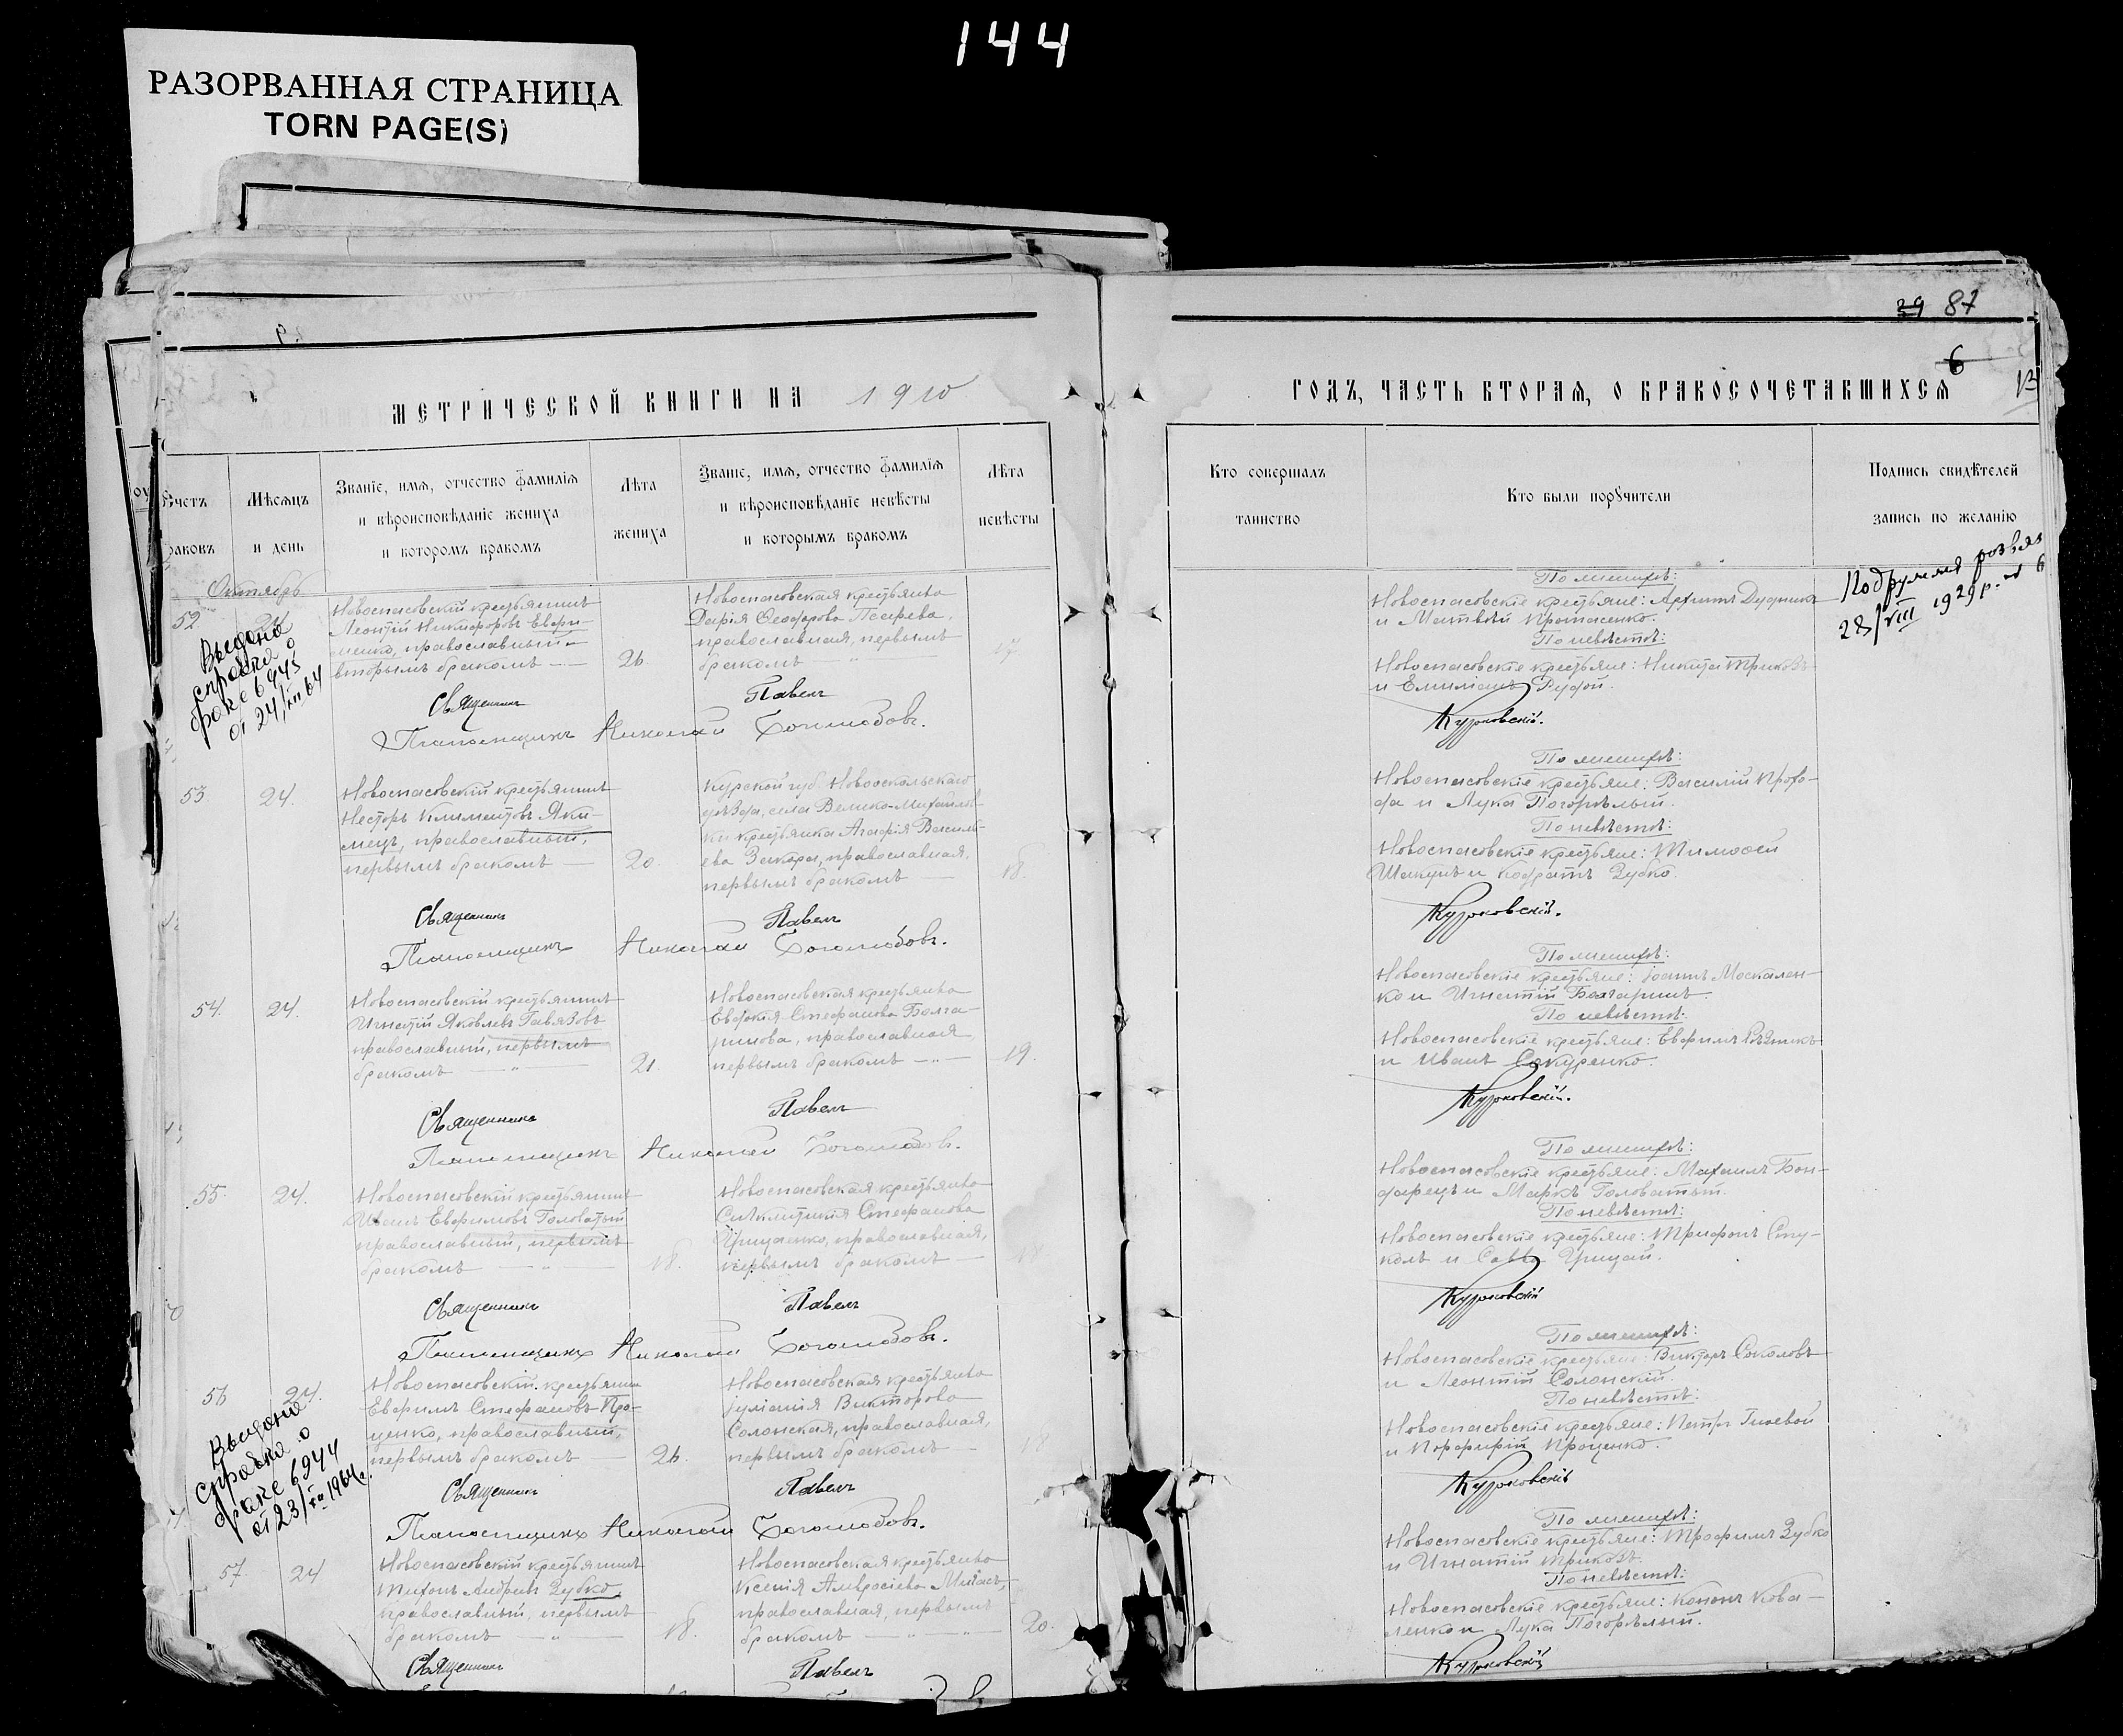 144
РАЗОРВАННАЯ СТРАНИЦА
TORN PAGE(S)
39 87
6
МЕТРИЧЕСКОЙ КНИГИ НА 1910
ГОДЪ, ЧАСТЬ ВТОРАЯ, О БРАКОСОЧЕТАВШИХСЯ
Счетъ
браковъ
Мѣсяцъ
и день
Званіе, имя, отчество фамилія
и вѣроисповѣданіе жениха
и которомъ бракомъ
Лѣта
жениха
Званіе, имя, отчество фамилія
и вѣроисповѣданіе невѣсты
и которымъ бракомъ
Лѣта
невѣсты
Кто совершалъ
таинство
Кто были поручители
Подпись свидѣтелей
запись по желанію
Октябрь
52
Выдана
справка о
браке 6943
от 24/XII 64
Новоспасовскій крестьянинъ
Леонтій Никифоровъ Ефри-
менко, православный
вторымъ бракомъ
26
Новоспасовская крестьянка
Дарія Ѳеодорова Псарева,
православная, первымъ
бракомъ
По женихѣ:
Новоспасовскіе крестьяне: Архипъ Дудникъ
и Матвѣй Протасенко.
По невѣстѣ:
Новоспасовскіе крестьяне: Никита Триковъ
и Емиліанъ Рудой.
28/VIII 1929 р.
Священникъ Павелъ Курковскій.
Псаломщикъ Николай Боголюбовъ.
53 24.
Новоспасовскій крестьянинъ
Несторъ Климентовъ Яки-
мецъ, православный,
первымъ бракомъ
20.
Курской губ. Новооскольскаго
уѣзда, села Велико-Михайлов-
ки крестьянка Агафія Василь-
ева Закора, православная,
первымъ бракомъ
18.
По женихѣ:
Новоспасовскіе крестьяне: Василій Прохо-
да и Лука Погорѣлый.
По невѣстѣ:
Новоспасовскіе крестьяне: Тимоѳей
Шакунъ и Кодратъ Зубко.
Священникъ Павелъ Курковскій.
Псаломщикъ Николай Боголюбовъ.
54. 24.
Новоспасовскій крестьянинъ
Игнатій Яковлевъ Гавязовъ
православный, первымъ
бракомъ
21.
Новоспасовская крестьянка
Евдокія Стефанова Болга-
ринова, православная
первымъ бракомъ
19.
По женихѣ:
Новоспасовскіе крестьяне: Іоаннъ Москален-
ко и Игнатій Болгаринъ.
По невѣстѣ:
Новоспасовскіе крестьяне: Ефримъ Рѣзникъ
и Иванъ Сокуренко.
Священникъ Павелъ Курковскій.
Псаломщикъ Николай Боголюбовъ.
55. 24.
Новоспасовскій крестьянинъ
Иванъ Ефримовъ Головатый
православный, первымъ
бракомъ
18.
Новоспасовская крестьянка
Синклитикія Стефанова
Грицаенко, православная,
первымъ бракомъ
18
По женихѣ:
Новоспасовскіе крестьяне: Михаилъ Бон-
дарецъ и Маркъ Головатый.
По невѣстѣ:
Новоспасовскіе крестьяне: Трифонъ Сту-
колъ и Савва Грицай.
Священникъ Павелъ Курковскій
Псаломщикъ Николай Боголюбовъ.
56 24.
Выдана
справка о
браке 6944
от 23/XII 1964 г.
Новоспасовскій крестьянинъ
Ефримъ Стефановъ Про-
ценко, православный,
первымъ бракомъ
26.
Новоспасовская крестьянка
Іуліанія Викторова
Солонская, православная,
первымъ бракомъ
18
По женихѣ:
Новоспасовскіе крестьяне: Викторъ Соколовъ
и Леонтій Солонскій.
По невѣстѣ:
Новоспасовскіе крестьяне: Петръ Гнѣвой
и Порфирій Проценко.
Священникъ Павелъ Курковскій
Псаломщикъ Николай Боголюбовъ.
57 24
Новоспасовскій крестьянинъ
Тихонъ Андреевъ Зубко
православный, первымъ
бракомъ
18.
Новоспасовская крестьянка
Ксенія Амвросіева
православная, первымъ
бракомъ
20.
По женихѣ:
Новоспасовскіе крестьяне: Трофимъ Зубко
и Игнатій Триковъ.
По невѣстѣ:
Новоспасовскіе крестьяне: Кононъ Кова-
ленко и Лука Погорѣлый.
Священникъ Павелъ Курковскій